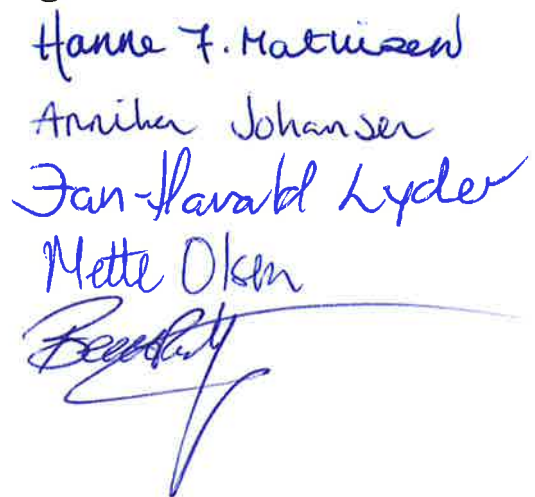 Hanne F. Mathisen
Annika Johansen
Jan-Harald Lyder
Mette Olsen